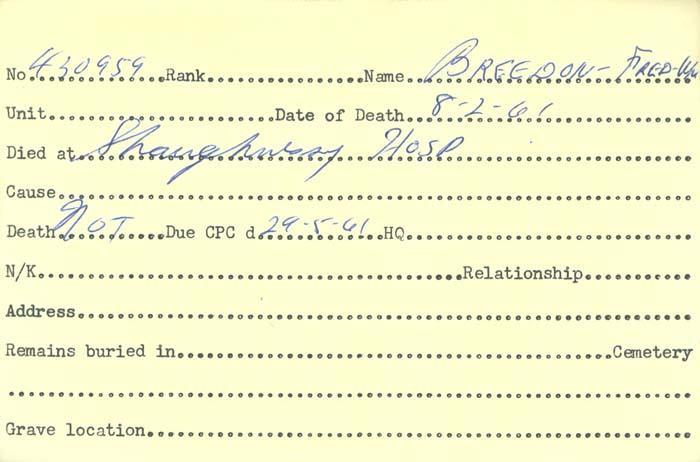 No. 430959 Rank Name BREEDON - FRED - Wm
Unit Date of Death 8-2-61
Died at Shaughnessy HOSP
Cause
Death NOT Due CPC d. 29-5-61 HQ
N/K Relationship
Address
Remains buried in Cemetery
Grave location